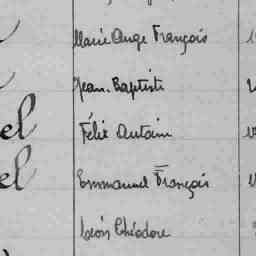 Marie Ange François
Jean-Baptiste
el Félix Antoine
el Emmanuel François
Léon Théodore